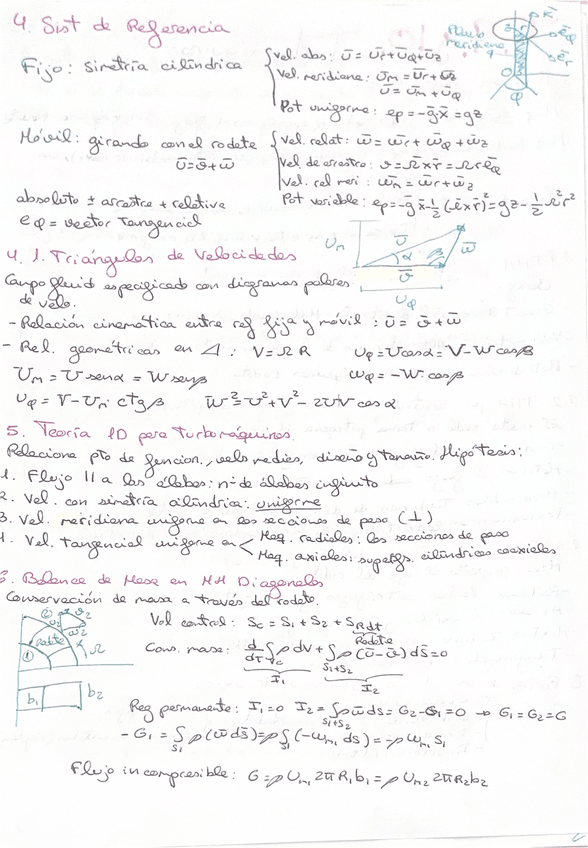 4. Sist de Referencia
Fijo: simetría cilíndrica
vel. abs: ū = ūr + ūφ + ūz
vel. meridiana: ūm = ūr + ūz
ū = ūm + ūφ
Pot unigorme: ep = -ḡx̄ = gz
Plano meridiano
k̄
ēφ
ēr
O
φ
Móvil: girando con el rodete
ū = v̄ + w̄
vel. relat: w̄ = w̄r + w̄φ + w̄z
vel. de arrastre: v̄ = Ω̄ x r̄ = Ω r ēφ
vel. rel meri: w̄m = w̄r + w̄z
Pot variable: ep = -ḡ x̄ - 1/2 (Ω̄ x r̄)² = gz - 1/2 Ω² r²
absoluto ± arrastre + relative
eφ = vector tangencial
4. 1. Triángulos de Velocidades
Um
ū
α
β
w̄
v̄
Uφ
Campo fluid especificado con diagramas polares
de velo.
- Relación cinemática entre ref fija y movil : ū = v̄ + w̄
- Rel. geométricas en ⊿ : V = Ω R   Uφ = U cos α = V - W cos β
Um = U sen α = W sen β   wφ = - W. cos β
Uφ = V - Um · ctg β   W² = U² + V² - 2UV cos α
5. Teoría 1D para Turbomáquinas.
Relaciona pto de funcion., vels medias, diseño y tamaño. Hipótesis:
1. Flujo // a los álabes: nº de álabes infinito
2. Vel. con simetría cilíndrica: uniforme
3. Vel. meridiana uniforme en las secciones de paso (⊥)
4. Vel. tangencial uniforme en < Maq. radiales: las secciones de paso
Maq. axiales: superfs. cilíndricas coaxiales
6. Balance de Masa en MH Diagonales
Conservación de masa a través del rodete.
② Rodete ① Ω
b1 b2
Vol control: Sc = S1 + S2 + SRdt
Rodete
Cons. mase: d/dt ∫Vc ρ dV + ∫S1+S2 ρ (ū - v̄) ds̄ = 0
I1
I2
Reg permanente: I1 = 0   I2 = ∫S1+S2 ρ w̄ ds = G2 - G1 = 0 → G1 = G2 = G
- G1 = ∫S1 ρ (w̄ ds̄) = ρ ∫S1 (-wm1 ds) = ρ wm1 S1
Flujo incompresible: G = ρ Um1 2π R1 b1 = ρ Um2 2π R2 b2